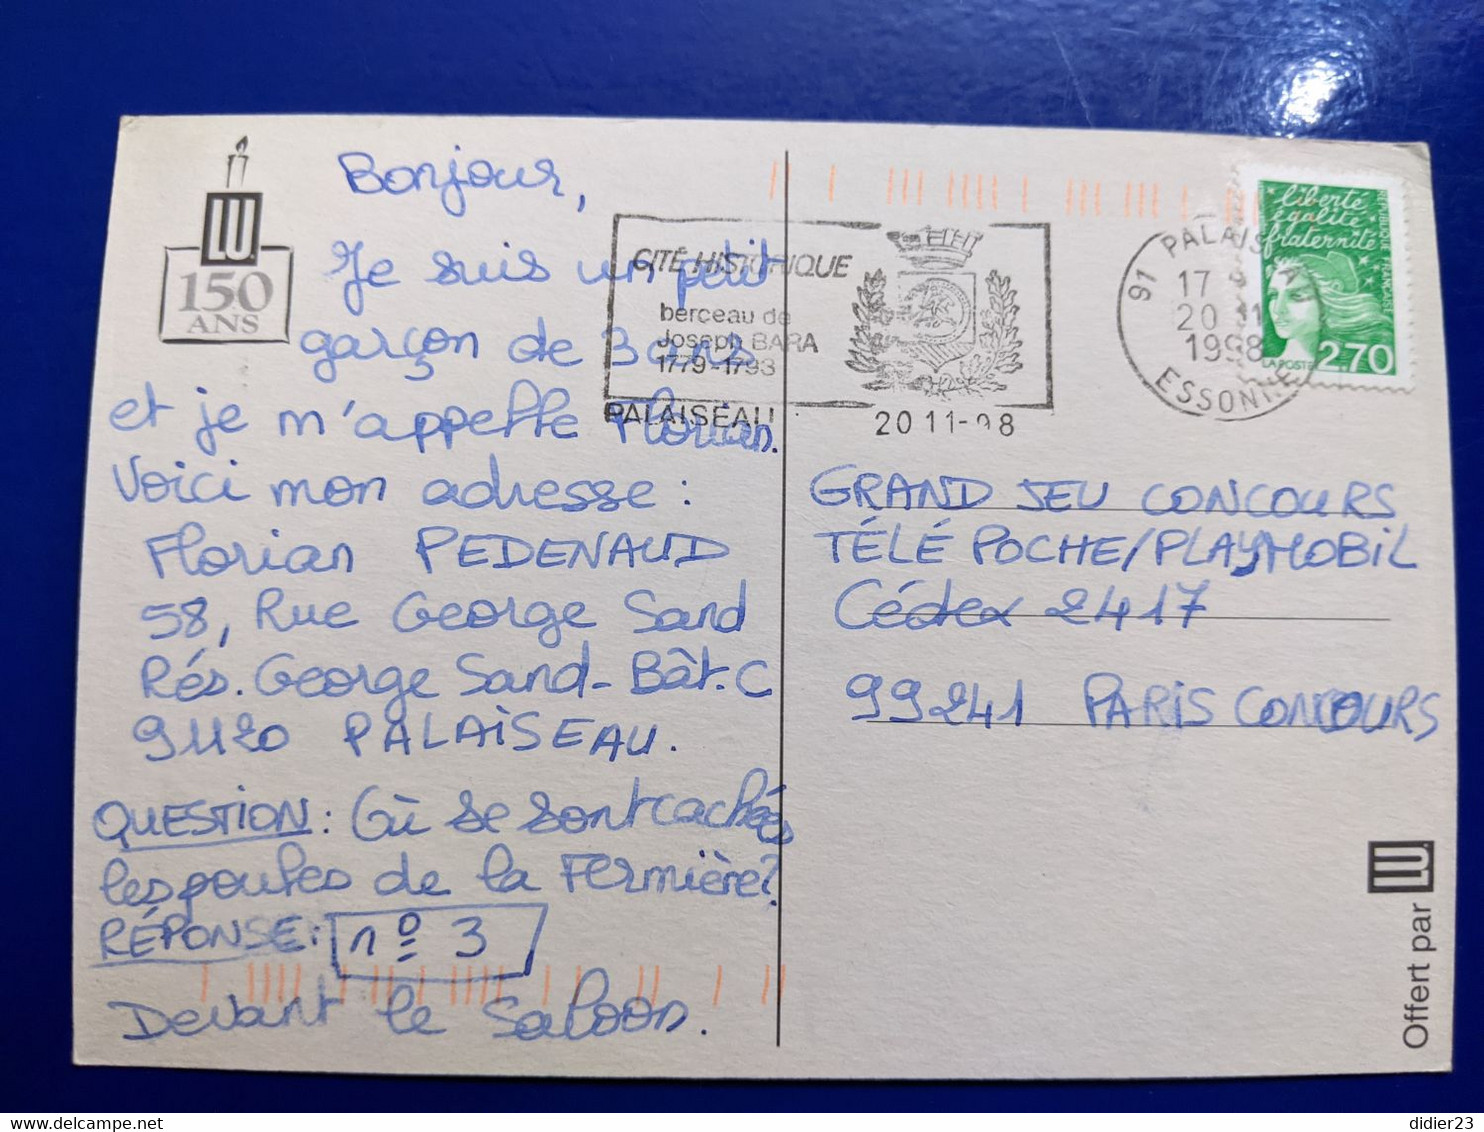 LU
150
ANS
Bonjour,
Je suis un petit
garçon de 3 ans
et je m'appelle Florian.
Voici mon adresse :
Florian PEDENAUD
58, Rue George Sand
Rés. George Sand - Bât. C
91120 PALAISEAU.
QUESTION : Où se sont cachées
les poules de la Fermière ?
RÉPONSE : n° 3
Devant le Saloon.
CITÉ HISTORIQUE
berceau de
Joseph BARA
1779-1793
PALAISEAU
20 11-98
91 PALAISEAU
17 H
20 11
1998
ESSONNE
liberté
égalité
fraternité
RÉPUBLIQUE FRANÇAISE
LA POSTE 2,70
GRAND JEU CONCOURS
TÉLÉ POCHE/PLAYMOBIL
Cédex 2417
99241 PARIS CONCOURS
Offert par LU
didier23